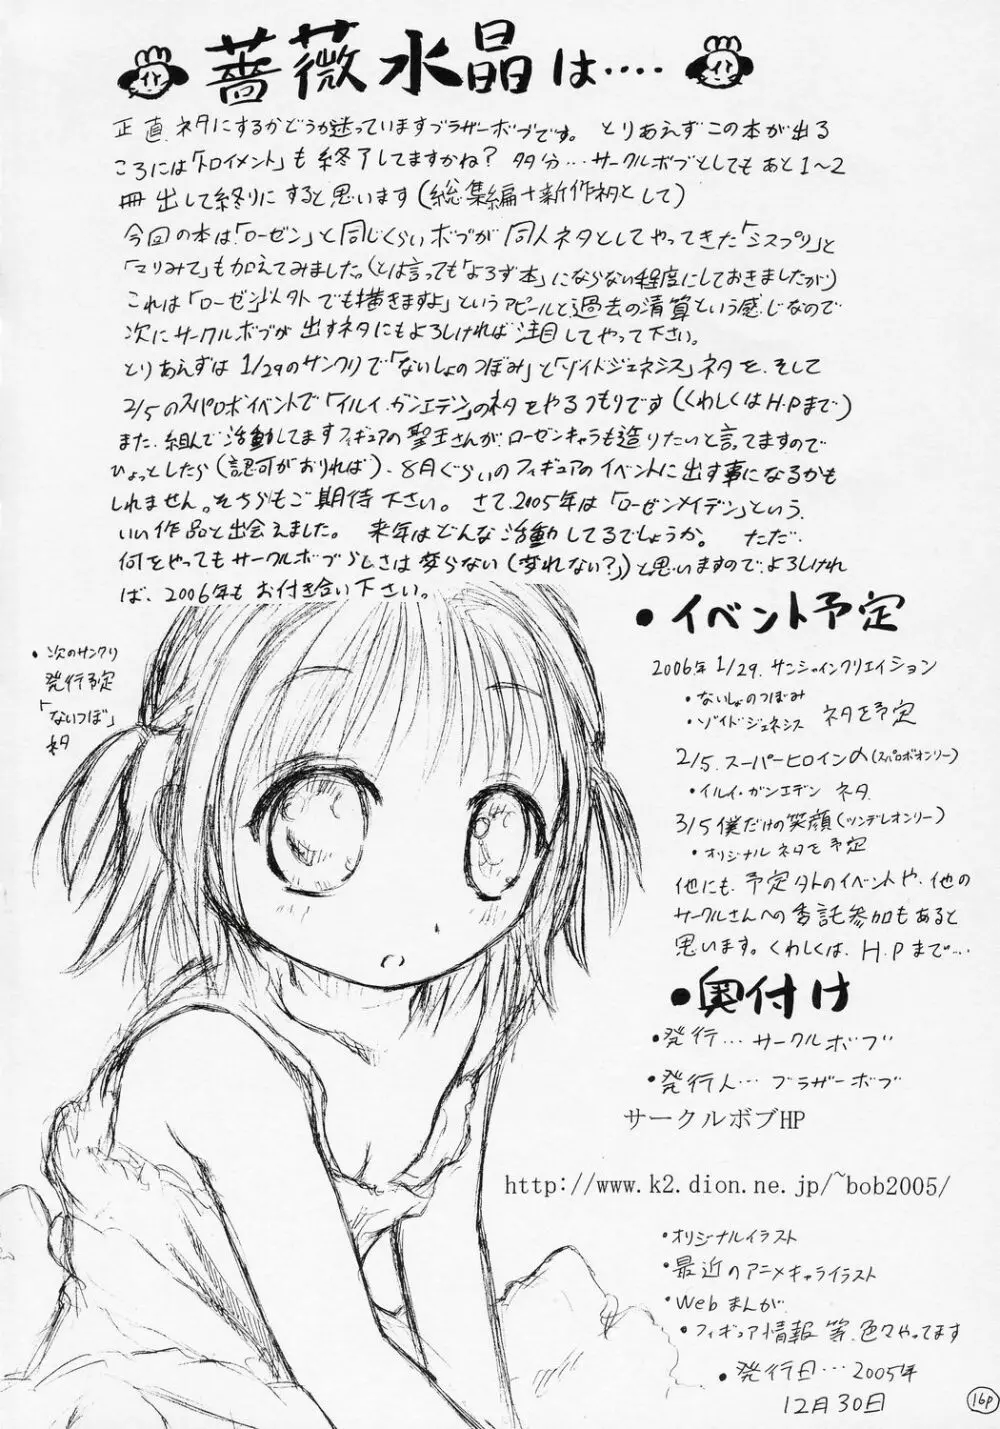 薔薇水晶は‥‥
正直ネタにするかどうか迷っていますブラザーボブです。 とりあえずこの本が出る
ころには「トロイメント」も終了してますかね? 多分…サークルボブとしてもあと1~2
冊出して終りにすると思います(総集編+新作ネタとして)
今回の本は「ローゼン」と同じくらいボブが同人ネタとしてやってきた「シスプリ」と
「マリみて」も加えてみました。(とは言っても「よろず本」にならない程度にしておきましたが)
これは「ローゼン」以外でも描きますよ」というアピールと過去の清算という感じなので
次にサークルボブが出すネタにもよろしければ注目してやって下さい。
とりあえずは 1/29のサンクリで「ないしょのつぼみ」と「ゾイドジェネシス」ネタを、そして
2/5のスパロボイベントで「イルイ・ガンエデン」のネタをやるつもりです(くわしくはH.Pまで)
また、組んで活動してますフィギュアの聖王さんが、ローゼンキャラも造りたいと言ってますので
ひょっとしたら(認可がおりれば)、8月ぐらいのフィギュアのイベントに出す事になるかも
しれません。そちらもご期待下さい。 さて、2005年は「ローゼンメイデン」という
いい作品と出会えました。 来年はどんな活動してるでしょうか。 ただ、
何をやってもサークルボブらしさは変らない(変れない?)と思いますので、よろしけれ
ば、2006年もお付き合い下さい。
・次のサンクリ
発行予定
「ないつぼ」
ネタ
・イベント予定
2006年 1/29. サンシャインクリエイション
・ないしょのつぼみ
・ゾイドジェネシス ネタを予定
2/5. スーパーヒロインの(スパロボオンリー)
・イルイ・ガンエデン ネタ
3/5 僕だけの笑顔(ツンデレオンリー)
・オリジナルネタを予定
他にも、予定外のイベントや、他の
サークルさんへの委託参加もあると
思います。くわしくは、H.Pまで…
・奥付け
・発行…サークルボブ
・発行人…ブラザーボブ
サークルボブHP
http://www.k2.dion.ne.jp/~bob2005/
・オリジナルイラスト
・最近のアニメキャライラスト
・Webまんが
・フィギュア情報 等、色々やってます
・発行日…2005年
12月30日
16P